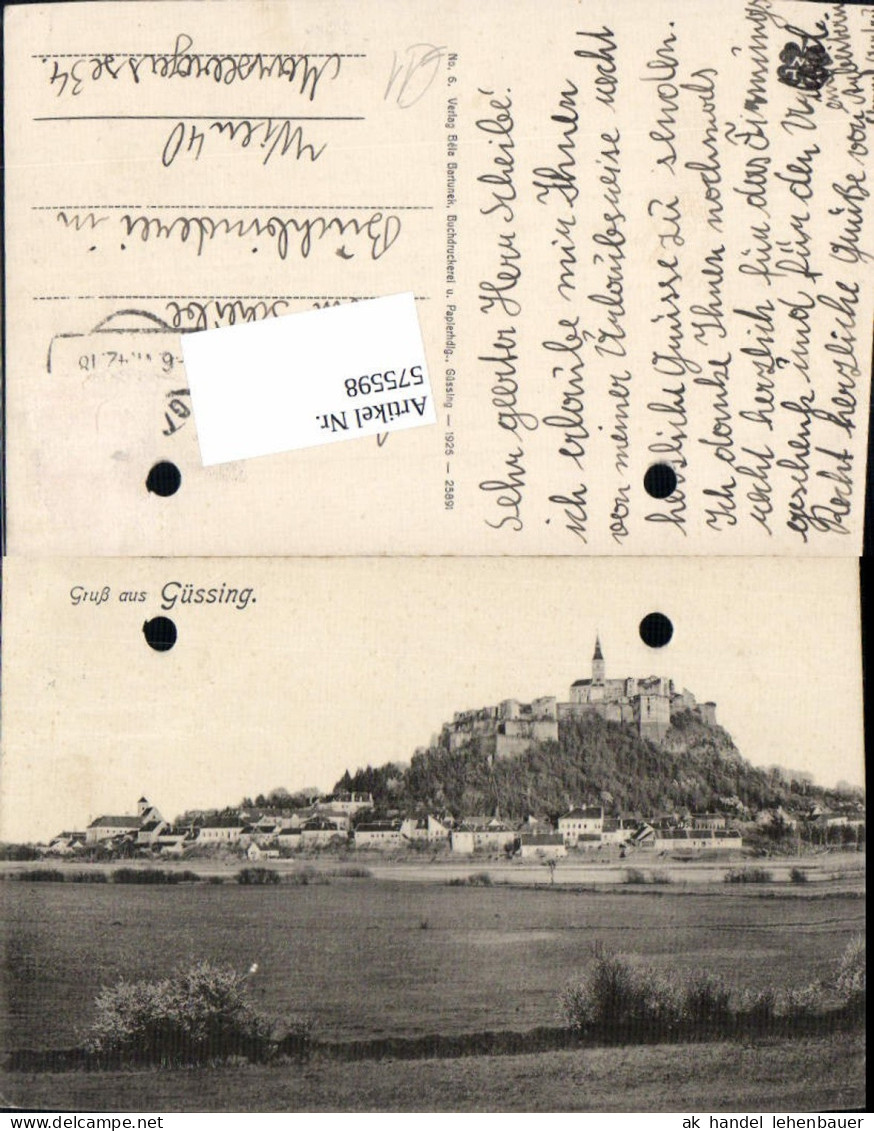 Sehr geerter Herr Scheibe!
ich erlaube mir Ihnen
von meiner Urlaubsreise recht
herzliche Grüsse zu senden.
Ich danke Ihnen nochmals
recht herzlich für das Firmungs
geschenk und für den Urlaub.
Recht herzliche Grüße von
No. 6. Verlag Béla Bartunek, Buchdruckerei u. Papierhdlg., Güssing — 1925 — 25891
Scheibe
Buchbinderei in
Wien 40
34.
Artikel Nr.
575598
Gruß aus Güssing.
ak handel lehenbauer